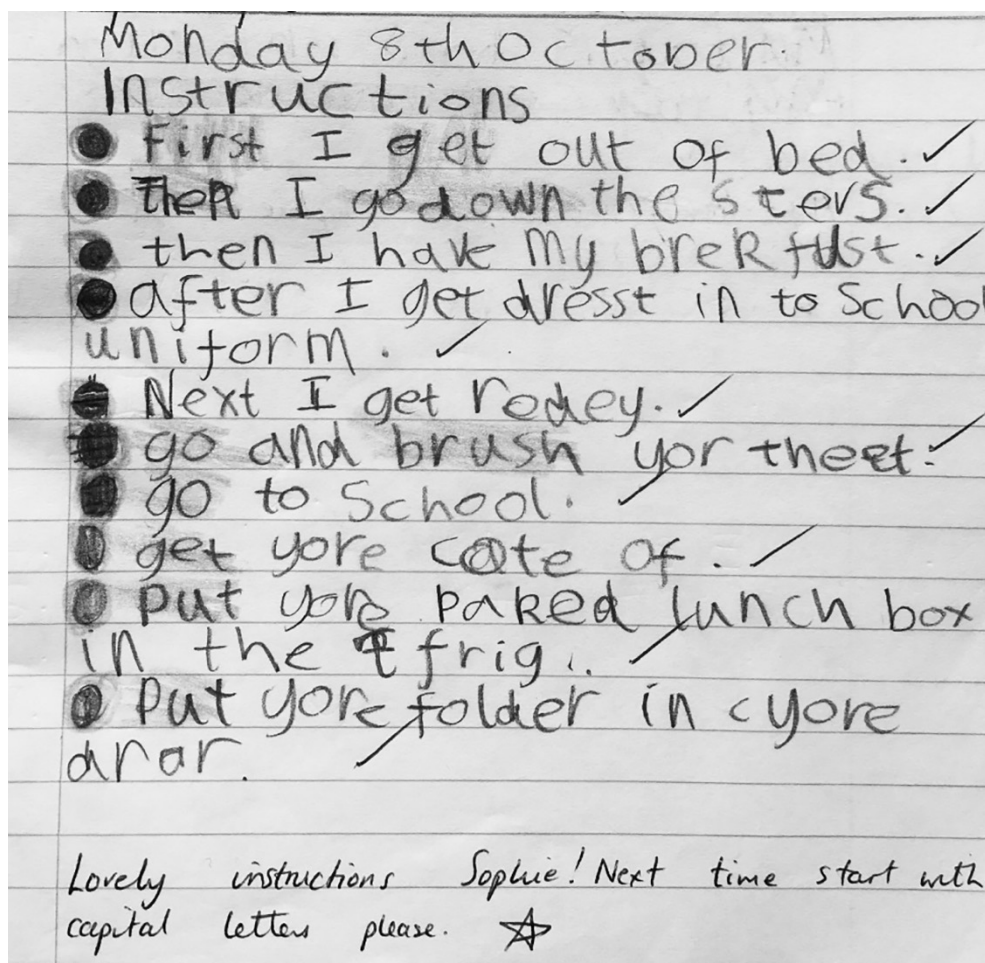 Monday 8th October.
Instructions
● first I get out of bed. ✓
● Then I go down the stevs. ✓
● then I have my brekfust. ✓
● after I get dresst in to School
uniform. ✓
● Next I get redey. ✓
● go and brush yor theet. ✓
● go to School. ✓
● get yore cote of. ✓
● put yore paked lunch box
in the frig. ✓
● put yore folder in cyore
drar. ✓
Lovely instructions Sophie! Next time start with
capital letters please. ☆